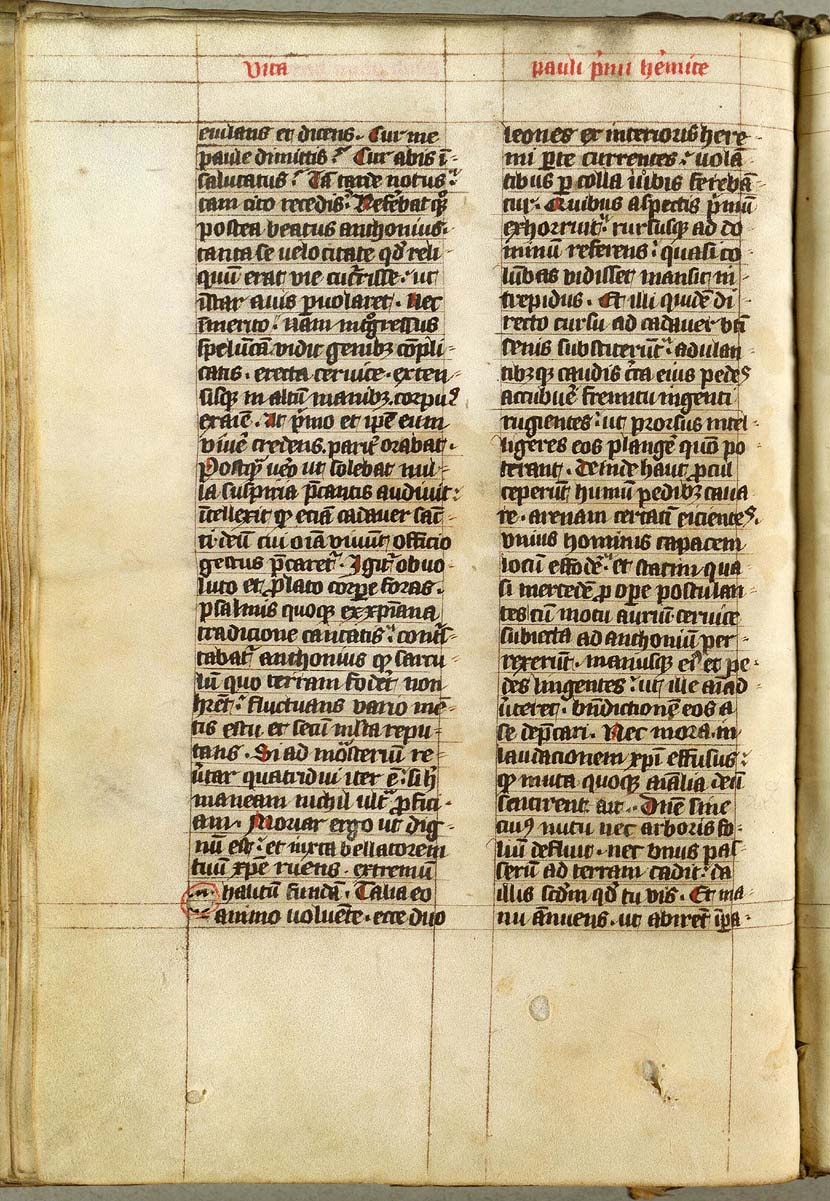 Vita
pauli p̄mi hẽmite
eiulans et dicens. Cur me
paule dimittis? Cur abis ī-
salutatus? Tā tarde notus
tam cito recedis? Referebat qͣ
postea beatus anthonius.
tanta se velocitate qd̄ reli-
quū erat vie cucͬrisse. ut
īstar auis puolaret. Nec
īmerito. nam introgressus
speluncā vidit genibꝫ cōpli-
catis. erecta ceruice. exten-
sisqꝫ in altum manibꝫ. corpus
exaīe. At p̄mo et ipē eum
viuē credens. pariť orabat.
Postqͣ vero ut solebat nul-
la suspiria p̄cantis audiuit:
ītellexit qꝫ etiā cadauer sāc-
ti deū cui oīa viuūt officio
gestus p̄caretͬ. Igitͬ obuo-
luto et plato corpe foras.
psalmis quoqꝫ ex xpīana
tradicione cantatis. contͥs-
tabatͬ anthonius qꝫ sarcu-
lū quo terram foderet non
hr̄et. fluctuans vario mē-
tis estu et secū ml̄ta repu-
tans. Si ad mōsteriū re-
ūtar quatridui iter ē. si hͥ
maneam nichil ultͣ profici-
am. Moriar ergo ut dig-
nū est. et iuxta bellatorem
tuū xp̄e ruens. extremū
halitū fundā. Talia eo
animo voluēte. ecce duo
leones ex interioris here-
mi p̄te currentes. uolā-
tibus p colla iubis ferebā-
tur. Quibus aspectis p̄mū
exhorruit. rursusqꝫ ad do-
minū referens. quasi co-
lūbas vidisset mansit in-
trepidus. Et illi quidē di-
recto cursu ad cadauer bt̄i
senis substiterūt. adulan-
tibꝫqꝫ caudis cͬca eius pedes
accubuēͬ fremitu ingenti
rugientes. ut prorsus intel-
ligeres eos plangē quō po-
terant. Deinde haut pcul
ceperūt humū pedibꝫ caua-
re. arenam certatī eicientes.
vnius hominis capacem
locū effodēͬ. et statim qua-
si mercedē p ope postulan-
tes cū motu auriū ceruice
subiecta ad anthoniū per-
rexerūt. manusqꝫ eiꝰ et pe-
des lingentes. ut ille aīad-
ūteret. bn̄dictionē eos a
se dep̄cari. Nec mora. in
laudacionem xpī effusus.
qꝫ muta quoqꝫ aīalia deū
sentirent ait. Dn̄e sine
cuiꝰ nutu nec arboris fo-
liū defluit. nec vnus pas-
serū ad terram cadit. da
illis scdm̄ qd̄ tu vis. Et ma-
nu ānuens. ut abirēt īpa-